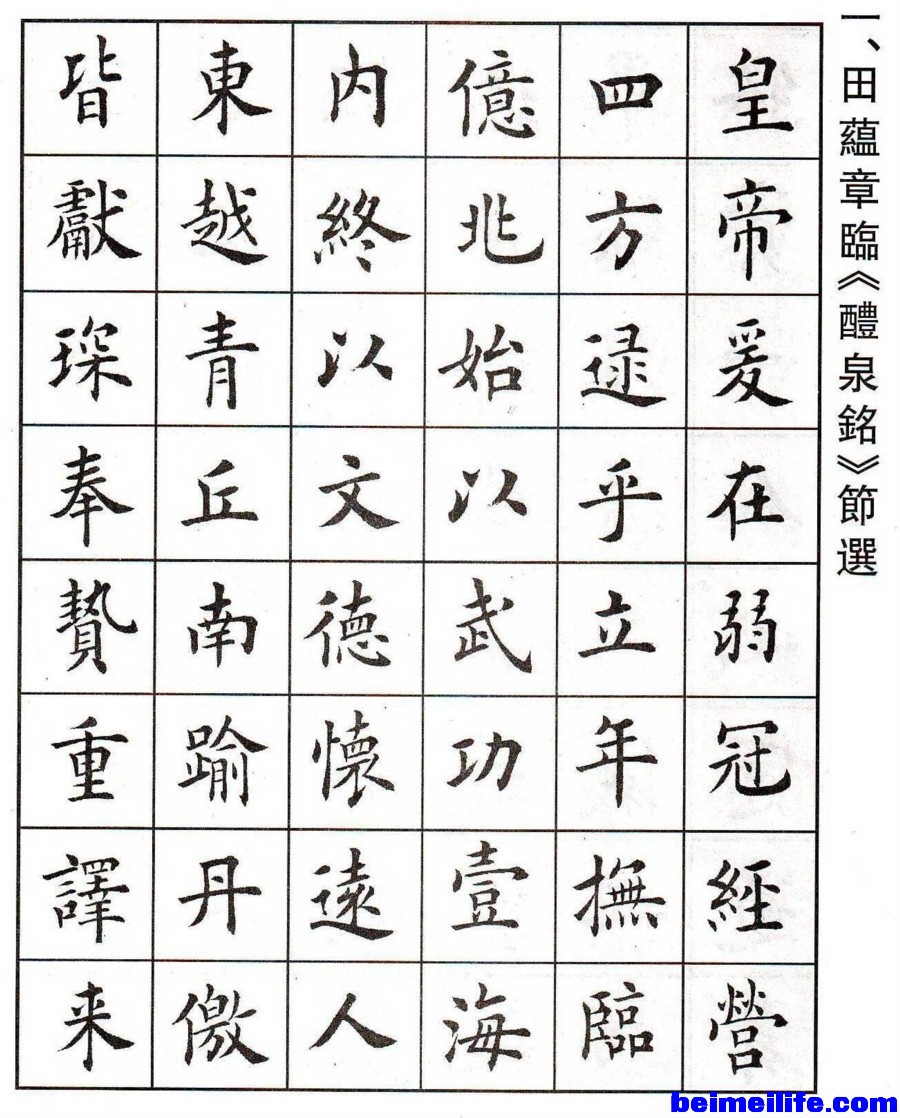 一、田蘊章臨《醴泉銘》節選
皇帝爰在弱冠經營
四方逯乎立年撫臨
億兆始以武功壹海
内終以文德懷遠人
東越青丘南踰丹儌
皆獻琛奉贄重譯来
beimeilife.com